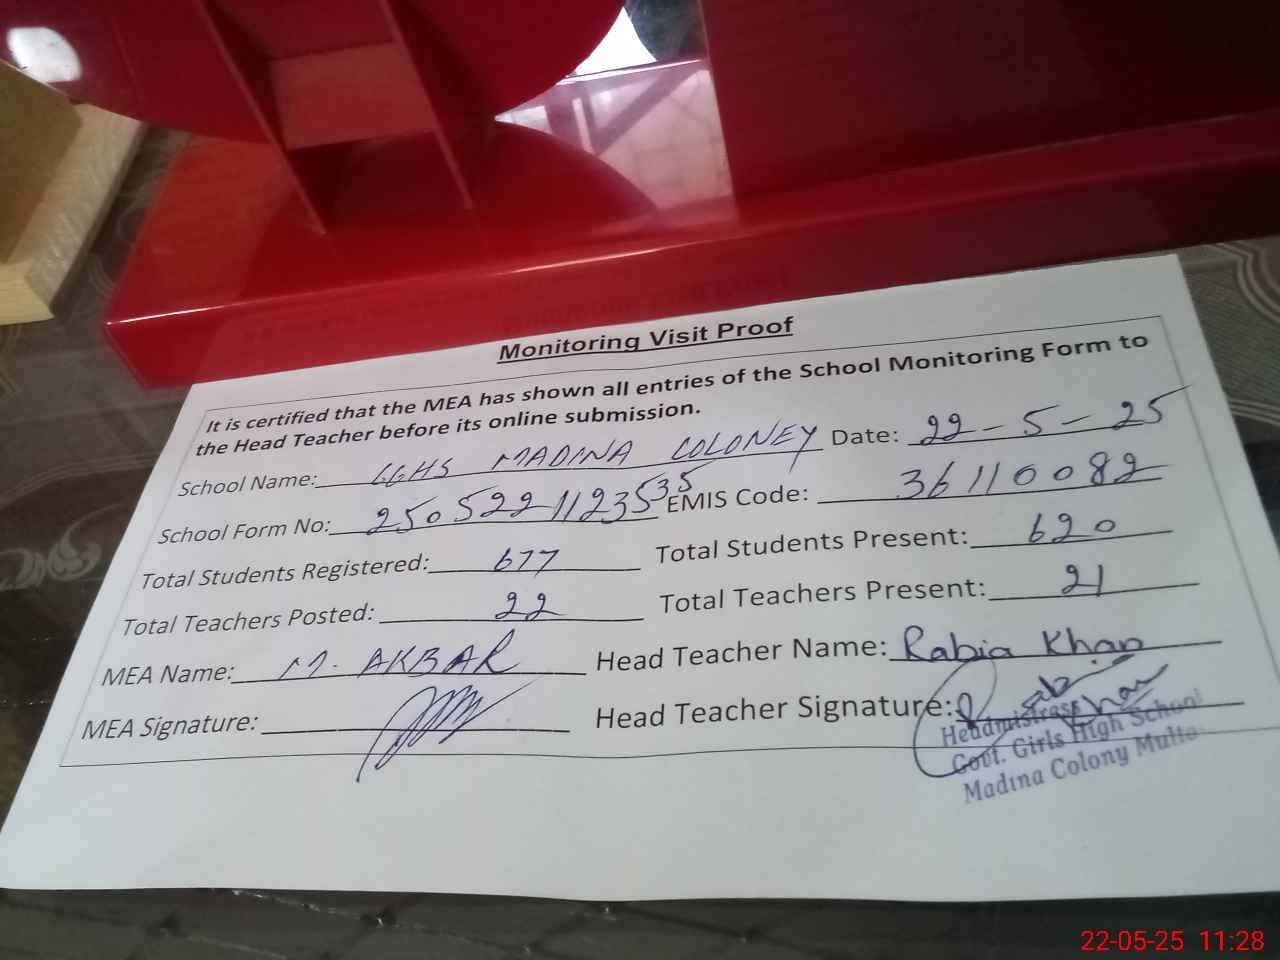 Monitoring Visit Proof
It is certified that the MEA has shown all entries of the School Monitoring Form to
the Head Teacher before its online submission.
School Name: GGHS MADINA COLONEY Date: 22-5-25
School Form No: 2505221123535 EMIS Code: 36110082
Total Students Registered: 677 Total Students Present: 620
Total Teachers Posted: 22 Total Teachers Present: 21
MEA Name: M. AKBAR Head Teacher Name: Rabia Khan
MEA Signature: Head Teacher Signature:
Headmistress
Govt. Girls High School
Madina Colony Multa
22-05-25 11:28